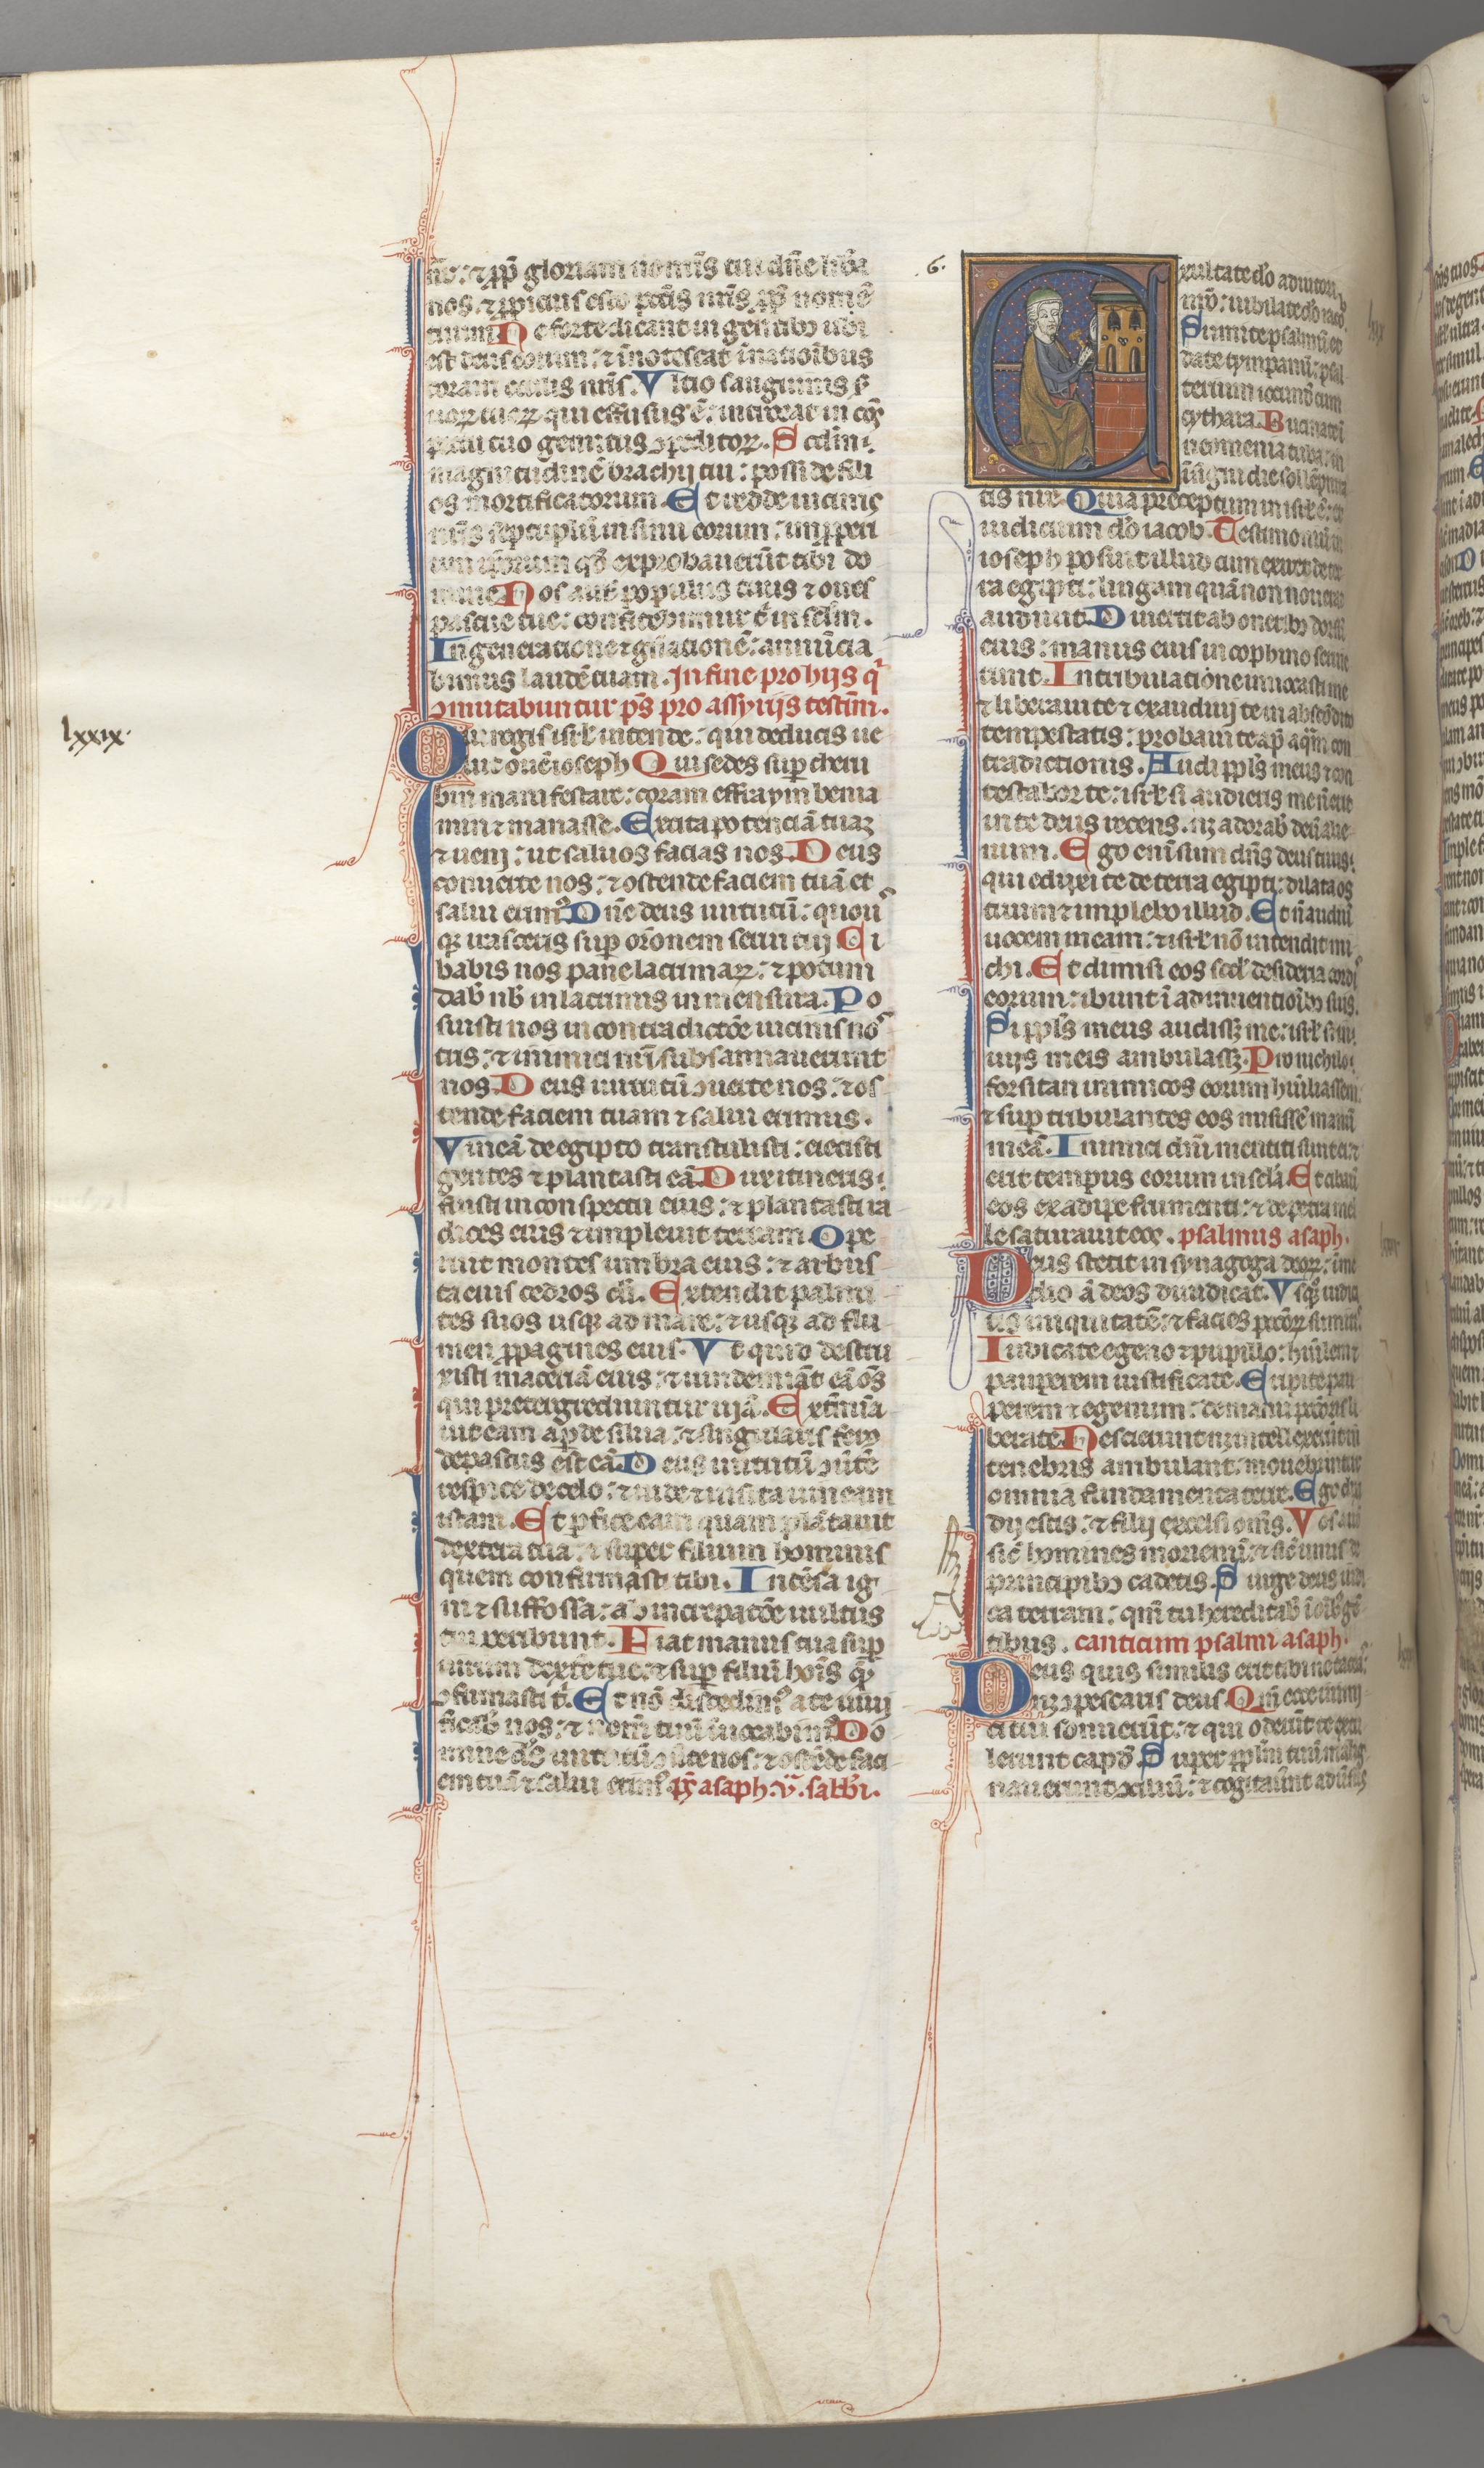 nr̄: ⁊ ꝓp̄ gloriam nominis tui dn̄e lib̄a
nos. ⁊ ꝓpicius esto pcc̄is nr̄is ꝓp̄ nomē
tuum Ne forte dicant in gentibꝫ ubi
est deus eorum: ⁊ īnotescat ī nationibus
coram oculis nr̄is. Vltio sanguinis s̄
uoꝝ tuoꝝ qui effusus ē: introeat in cō
spectu tuo gemitus ꝯpeditoꝝ. Scdm̄
magnitudinē brachij tui: posside fili
os mortificatorum. Et redde uicinis
nr̄is septuplū in sinu eorum: improperi
um ip̄orum qd̄ exprobauerūt tibi do
mine Nos aut̄ populus tuus ⁊ oues
pascue tue: confitebimur t̄ in sclm̄.
In generatione ⁊ gn̄ationē: annūcia
bimus laudē tuam. In fine pro hijs q̄
ꝯmutabuntur p̄s pro assyrijs testim̄.
lxxix.
Qui regis isrl̄ intende: qui deducis ue
lut ouē ioseph Qui sedes suꝑ cheru
bin manifestare: coram effraym benia
min ⁊ manasse. Excita potenciā tuaꝫ
⁊ ueni: ut saluos facias nos. Deus
conuerte nos: ⁊ ostende faciem tuā et
salui erimꝰ Dn̄e deus uirtutū: quou
qꝫ irasceris suꝑ or̄onem serui tui Ci
babis nos pane lacrimaꝝ: ⁊ potum
dab̄ nb̄ in lacrimis in mensura. Po
suisti nos in contradictōe uicinis no
tris: ⁊ inimici nr̄i subsannauerunt
nos. Deus uirtutū ꝯuerte nos: ⁊ os
tende faciem tuam ⁊ salui erimus.
Vineā de egipto transtulisti: eiecisti
gentes ⁊ plantasti eā. Dux itineris
fuisti in conspectu eius: ⁊ plantasti ra
dices eius ⁊ impleuit terram. Ope
ruit montes umbra eius: ⁊ arbus
ta eius cedros di. Extendit palmi
tes suos usqꝫ ad mare: ⁊ usqꝫ ad flu
men ꝓpagines eius. Vt quid destru
xisti maceriā eius: ⁊ uindemiāt eā oēs
qui pretergrediuntur uiā. Extīmīa
uit eam aꝑ de silua: ⁊ singularis ferꝰ
depastus est eā. Deus uirtutū ꝯūte
respice de celo: ⁊ uide ⁊ uisita uineam
istam. Et ꝑfice eam quam plātauit
dextera tua: ⁊ super filium hominis
quem confirmasti tibi. Incēsa ig
ni ⁊ suffossa: ab increpatōe uultus
tui peribunt. Fiat manus tua suꝑ
uirum dextē tue: ⁊ suꝑ filiū hoīs quē
ꝯfirmasti t̄. Et nō discedimꝰ a te uiui
ficab̄ nos: ⁊ nom̄ tuū inuocabimꝰ Do
mine ds̄ uirtutū ꝯūte nos: ⁊ ostēde faci
em tuā ⁊ salui erimꝰ ps̄ asaph. v̄. sabbi.
.6.
Exultate dō adiutori
nr̄o: iubilate dō iacob.
Sumite psalmū et
date tympanū: psal
terium iocundū cum
cythara. Bucinate ī
neomenia tuba: in
insigni die sollēpnita
tis nr̄e. Quia preceptum in isrl̄ ē: et
iudicium dō iacob. Testimoniū in
ioseph posuit illud cum exiret de ter
ra egipti: linguam quā non nouerat
audiuit. Diuertit ab oneribꝫ dorsū
eius: manus eius in cophino seruie
runt. In tribulatione inuocasti me
⁊ liberaui te ⁊ exaudiui te in abscōdito
tempestatis: probaui te ap̄ aq̄m con
tradictionis. Audi ppl̄s meus ⁊ con
testabor te: isrl̄ si audieris me nō erit
in te deus recens. nꝫ adorab̄ deū alie
num. Ego enī sum dn̄s deus tuus:
qui eduxi te de terra egipti: dilata os
tuum ⁊ implebo illud. Et n̄ audiuit
uocem meam: ⁊ isrl̄ nō intendit mi
chi. Et dimisi eos scd̄ desideria cordis
eorum: ibunt ī adinuentioībꝫ suis.
Si ppl̄s meus audissꝫ me: isrl̄ si in
uijs meis ambulassꝫ. Pro nichilo
forsitan inimicos eorum hūiliassem:
⁊ suꝑ tribulantes eos misissē manū
meā. Inimici dn̄i mentiti sunt ei: ⁊
erit tempus eorum in scl̄a. Et cibauit
eos ex adipe frumenti: ⁊ de petra mel
le saturauit eos. psalmus asaph.
Deus stetit in synagoga deoꝝ: ī me
dio ā deos diiudicat. Vsqꝫ iudica
tis iniquitatē: ⁊ facies pccōꝝ sumitis
Iudicate egeno ⁊ pupillo: hūilem ⁊
pauperem iustificate. Eripite pau
perem ⁊ egenum: de manu pccōris li
berate. Nescierunt nꝫ intellexerūt in
tenebris ambulant: mouebuntur
omnia fundamenta terre. Ego dixi
dij estis: ⁊ filij excelsi om̄s. Vos aūt
sic̄ homines moriemī: ⁊ sic̄ unus de
principibꝫ cadetis. Surge deus iudi
ca terram: qm̄ tu hereditab̄ ī oībꝫ gē
tibus. canticum psalmi asaph.
Deus quis similis erit tibi ne taceas:
nꝫ ꝯpescaris deus. Qm̄ ecce inimi
ci tui sonuerūt: ⁊ qui oderūt te extu
lerunt capd̄. Super ppl̄m tuū malig
nauerunt ꝯsiliū: ⁊ cogitauūt aduersus